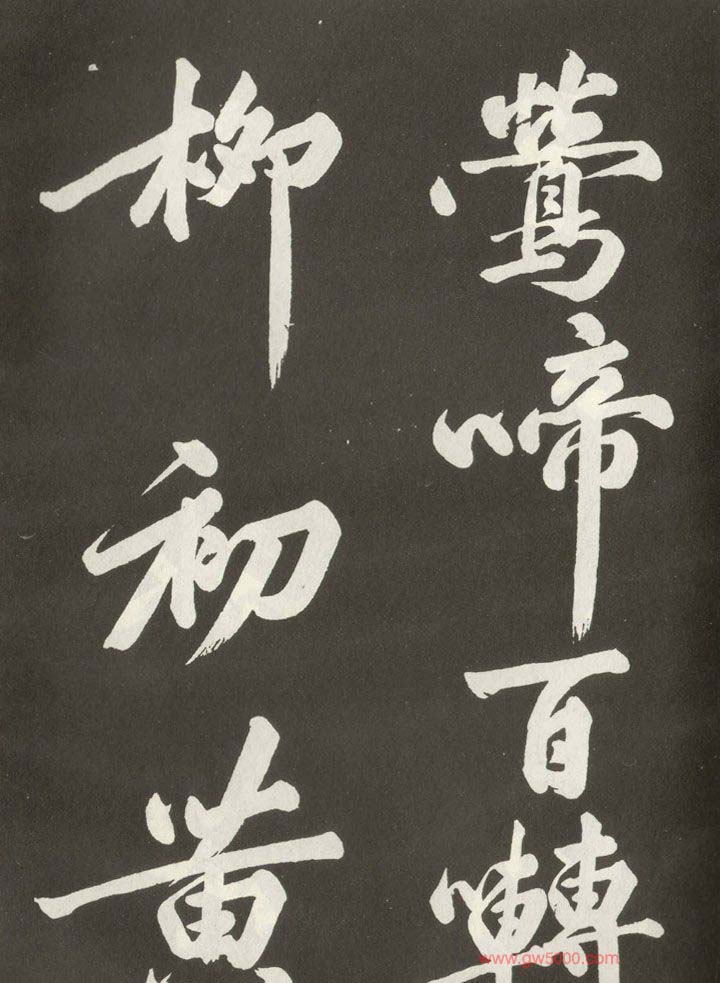 鶯啼百囀
柳初黃
www.gw5000.com